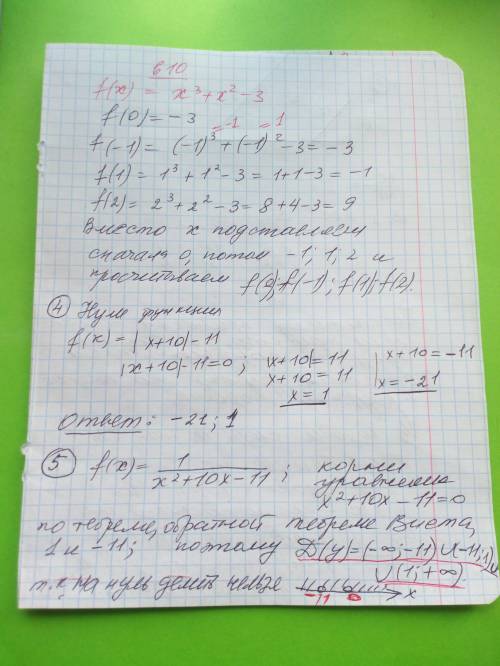 в10
f(x) = x³+x²-3
f(0)= -3
=-1 =1
f(-1)= (-1)³+(-1)²-3=-3
f(1)= 1³+1²-3=1+1-3=-1
f(2)= 2³+2²-3=8+4-3=9
Вместо x подставляем
сначала 0, потом -1; 1; 2 и
просчитываем f(0); f(-1); f(1); f(2).
④ Нули функции
f(x)=|x+10|-11
|x+10|-11=0; |x+10|=11 | x+10=-11
x+10=11 | x=-21
x=1
Ответ: -21; 1
⑤ f(x)= 1/(x²+10x-11); корни
уравнения
x²+10x-11=0
по теореме, обратной теореме Виета,
1 и -11; поэтому D(y)=(-∞;-11)∪(-11;1)∪
∪(1;+∞).
т.к. на нуль делить нельзя
-11 x